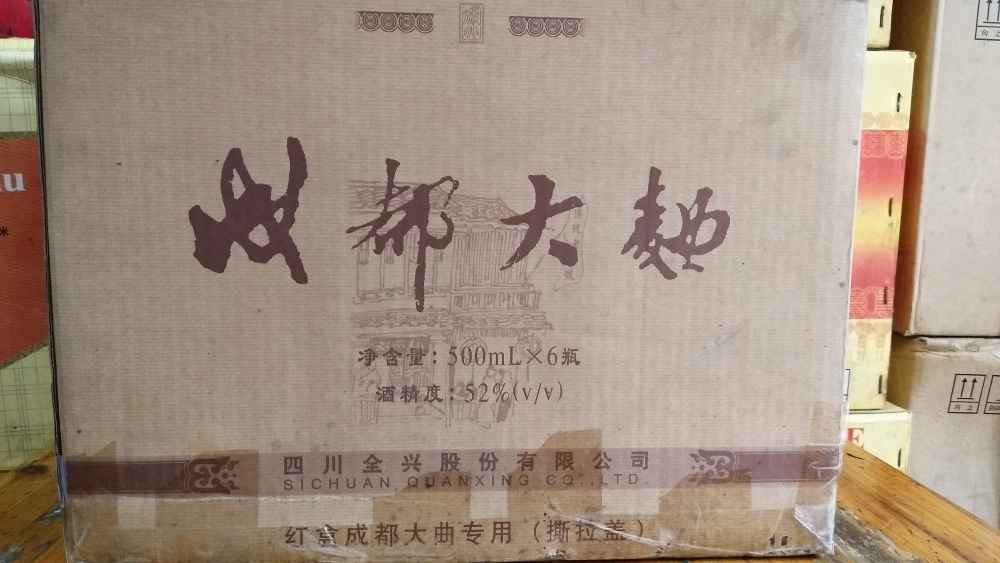 成都大麯
净含量：500mL×6瓶
酒精度：52%(v/v)
四川全兴股份有限公司
SICHUAN QUANXING CO.,LTD.
红京成都大曲专用（撕拉盖）
u
米
向上
向上
E